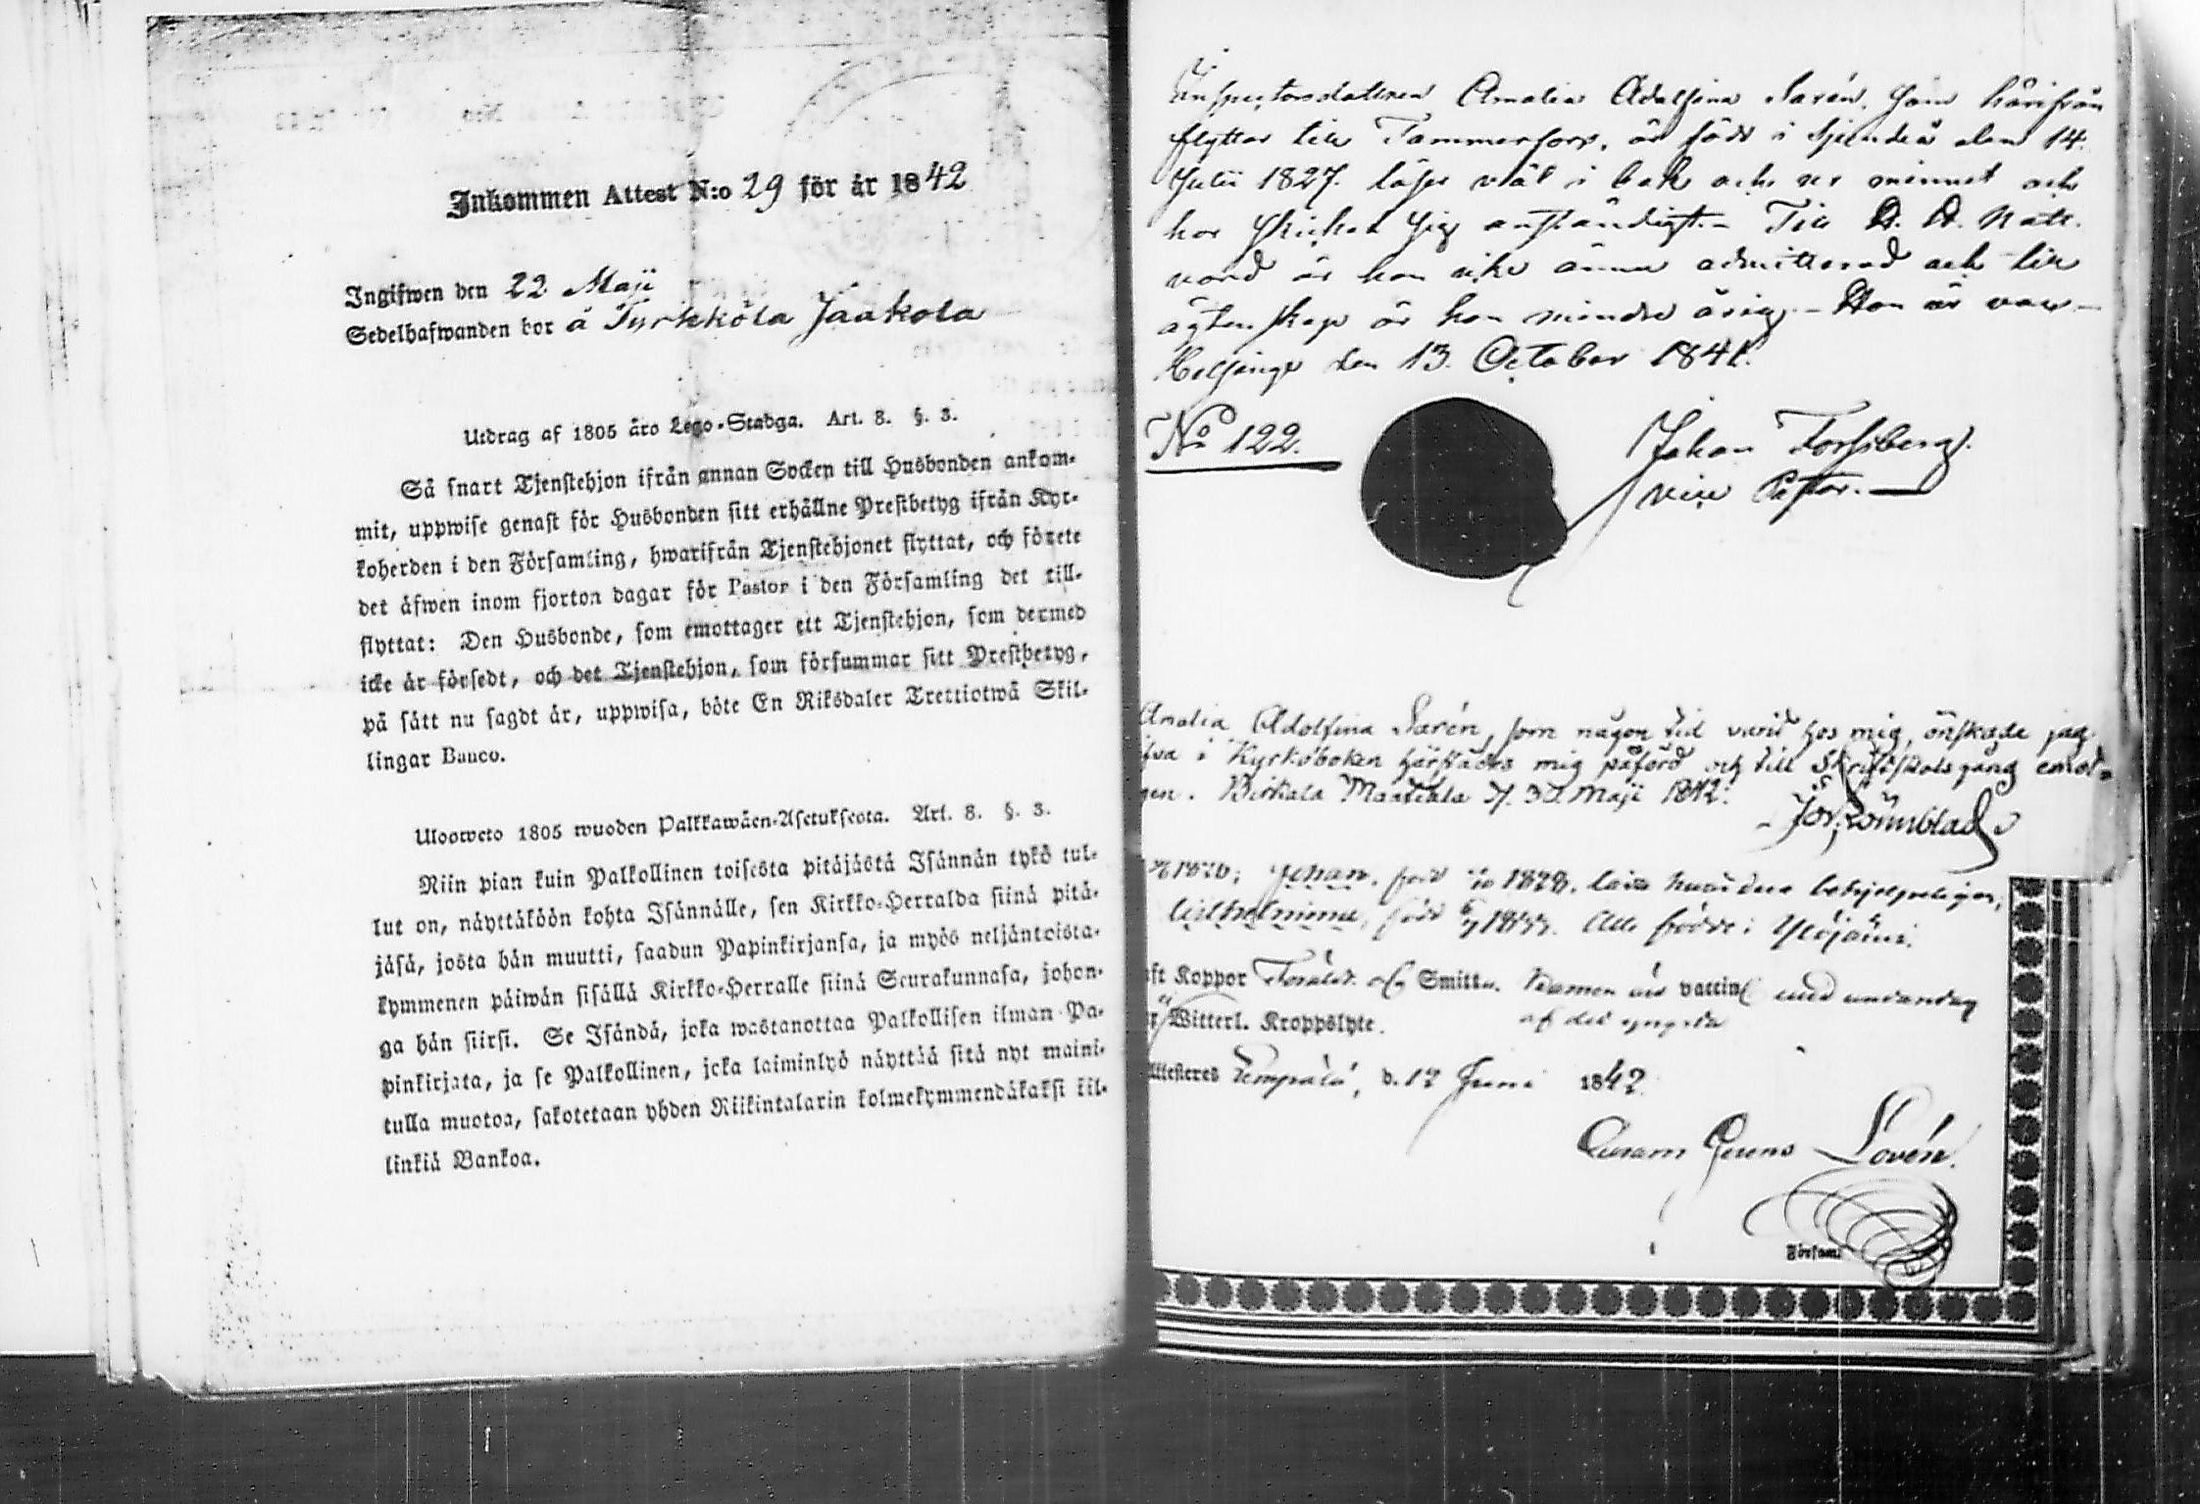 Inkommen Attest N:o 29 för år 1842
Ingifwen den 22 Maji
Sedelhafwanden bor å Tyrkkölä Jaakola
Utdrag af 1805 års Lego-Stadga. Art. 8. §. 3.
Så snart Tjenstehjon ifrån annan Socken till Husbonden ankom-
mit, uppwise genast för Husbonden sitt erhållne Prestbetyg ifrån Kyr-
koherden i den Församling, hwarifrån Tjenstehjonet flyttat, och förete
det äfwen inom fjorton dagar för Pastor i den Församling det till-
flyttat: Den Husbonde, som emottager ett Tjenstehjon, som dermed
icke är försedt, och det Tjenstehjon, som försummar sitt Prestbetyg,
på sätt nu sagdt är, uppwisa, böte En Riksdaler Trettiotwå Skil-
lingar Banco.
Ulosweto 1805 wuoden Palkkawäen-Asetuksesta. Art. 8. §. 3.
Niin pian kuin Palkollinen toisesta pitäjästä Isännän tykö tul-
lut on, näyttäköön kohta Isännälle, sen Kirkko-Herralda siinä pitä-
jäsä, josta hän muutti, saadun Papinkirjansa, ja myös neljäntoista-
kymmenen päiwän sisällä Kirkko-Herralle siinä Seurakunnasa, johon-
ga hän siirsi. Se Isändä, joka wastanottaa Palkollisen ilman Pa-
pinkirjata, ja se Palkollinen, joka laiminlyö näyttää sitä nyt maini-
tulla muotoa, sakotetaan yhden Riikintalarin kolmekymmendäkaksi kil-
linkiä Bankoa.
Inspectorsdottren Amalia Adolfina Sarén, som härifrån
flyttar till Tammerfors, är född i Sjundeå den 14
Julii 1827. läser väl i bok och ur minnet och
har skickat sig anständigt. – Till H. H. Natt-
vard är hon icke ännu admitterad och till
ägtenskap är hon minderårig. – Hon är vacc–
Helsinge den 13. October 1841.
No 122.
Johan Forssberg.
vice Pastor.
Amalia Adolfina Sarén, som någon tid varit hos mig, önskade jag
i Kyrkoboken härstädes mig påförd och till Skriftskolsgång emot-
gen. Birkala Maatiala d. 30 Maji 1842.
Lönnblad
Johan. född 1828. läsa
Wilhelmina, född Alla födde i Ylöjärvi.
Koppor Föräldr. och Smittn. Barnen äro vaccin med undantag
af det yngsta
Witterl. Kroppslyte.
Attesteres Lempälä, d. 12 Juni 1842.
Lovén.
Församl.